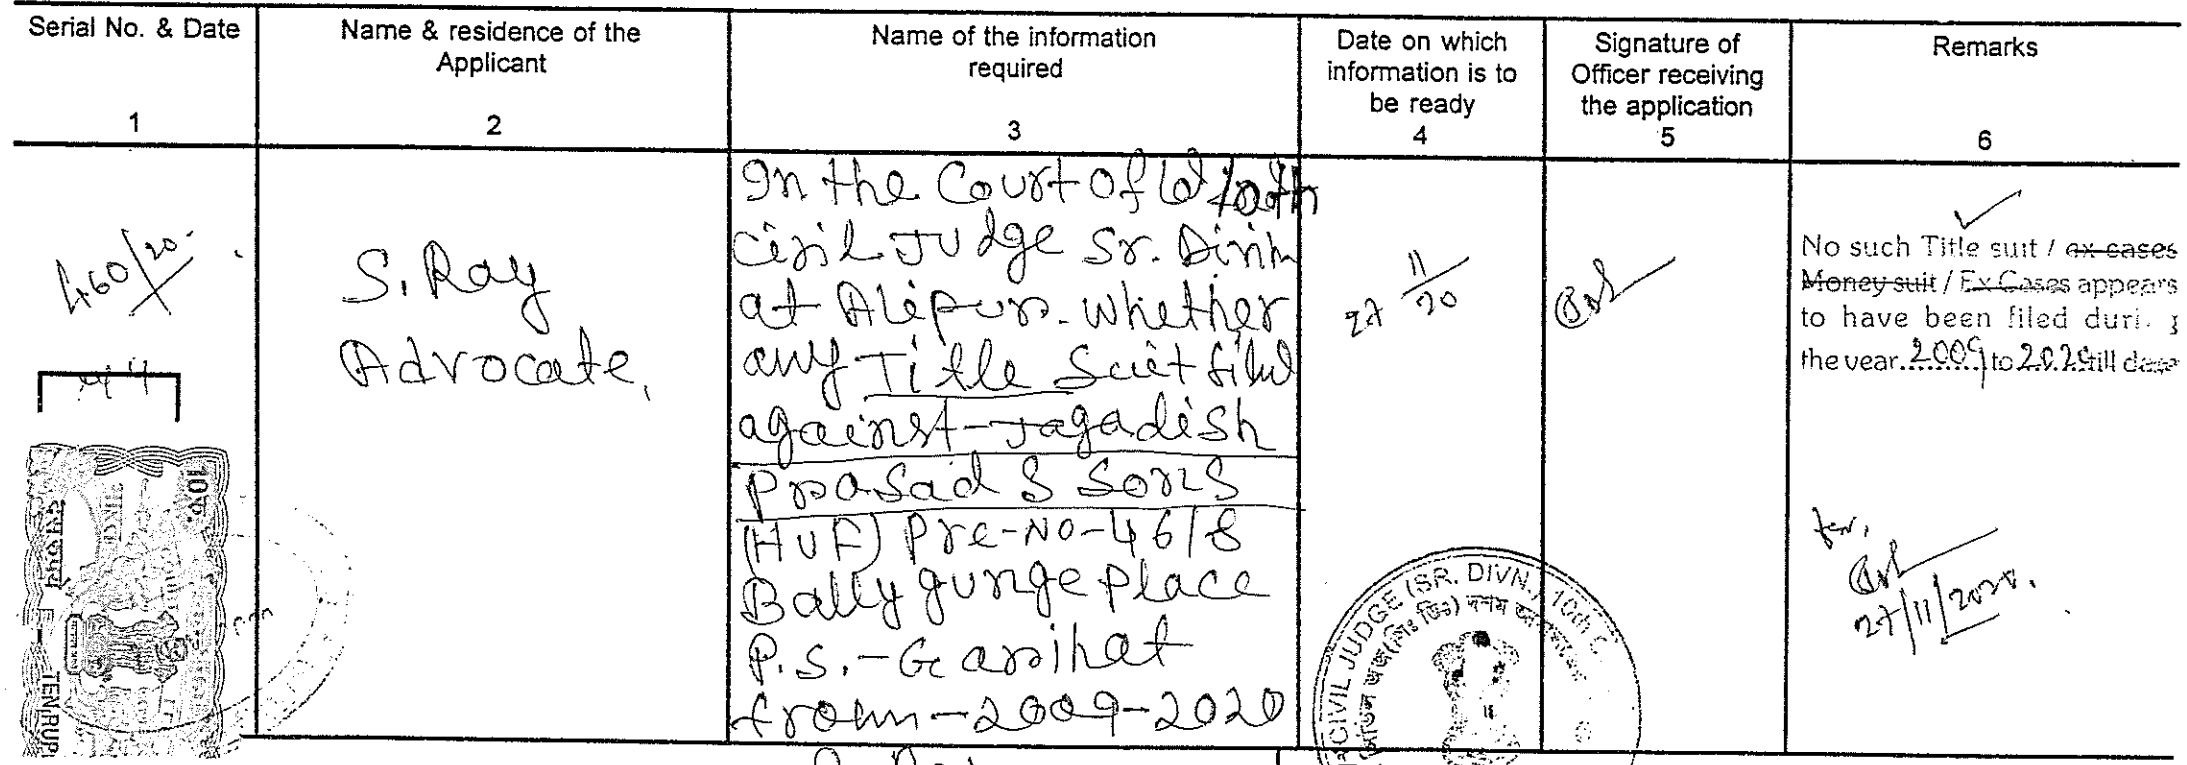 Serial No. & Date
1
Name & residence of the
Applicant
2
Name of the information
required
3
Date on which
information is to
be ready
4
Signature of
Officer receiving
the application
5
Remarks
6
460/20
S. Ray
Advocate,
In the Court of Ld 10th
Civil Judge Sr. Divn
at Alipur. Whether
any Title Suit filed
against Jagadish
Prasad & Sons
(HUF) Pre-No-46/8
Bally gunge Place
P.S.-Garihat
from-2009-2020
27 11/20
No such Title suit / ex cases
Money suit / Ex Cases appears
to have been filed duri
the year 2009 to 2020 till
27/11/2020.
CIVIL JUDGE (SR. DIVN.) 10th C
10रु.
TEN RUP